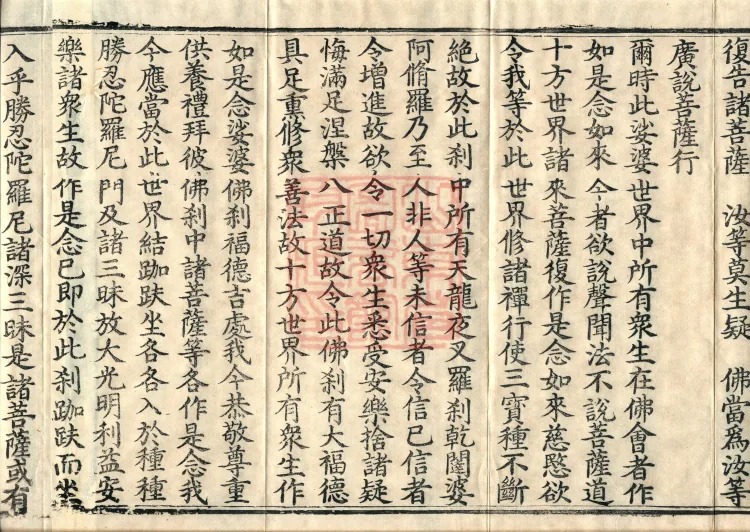 復告諸菩薩　汝等莫生疑　佛當爲汝等
廣説菩薩行
爾時此娑婆世界中所有衆生在佛會者作
如是念如來今者欲説聲聞法不説菩薩道
十方世界諸來菩薩復作是念如來慈愍欲
令我等於此世界修諸禪行使三寶種不斷
絶故於此刹中所有天龍夜叉羅刹乾闥婆
阿脩羅乃至人非人等未信者令信已信者
令增進故欲令一切衆生悉受安樂捨諸疑
悔滿足涅槃八正道故令此佛刹有大福德
具足熏修衆善法故十方世界所有衆生作
如是念娑婆佛刹福德吉處我今恭敬尊重
供養禮拜彼佛刹中諸菩薩等各作是念我
今應當於此世界結跏趺坐各各入於種種
勝忍陀羅尼門及諸三昧放大光明利益安
樂諸衆生故作是念已即於此刹跏趺而坐
入乎勝忍陀羅尼諸深三昧是諸菩薩或有